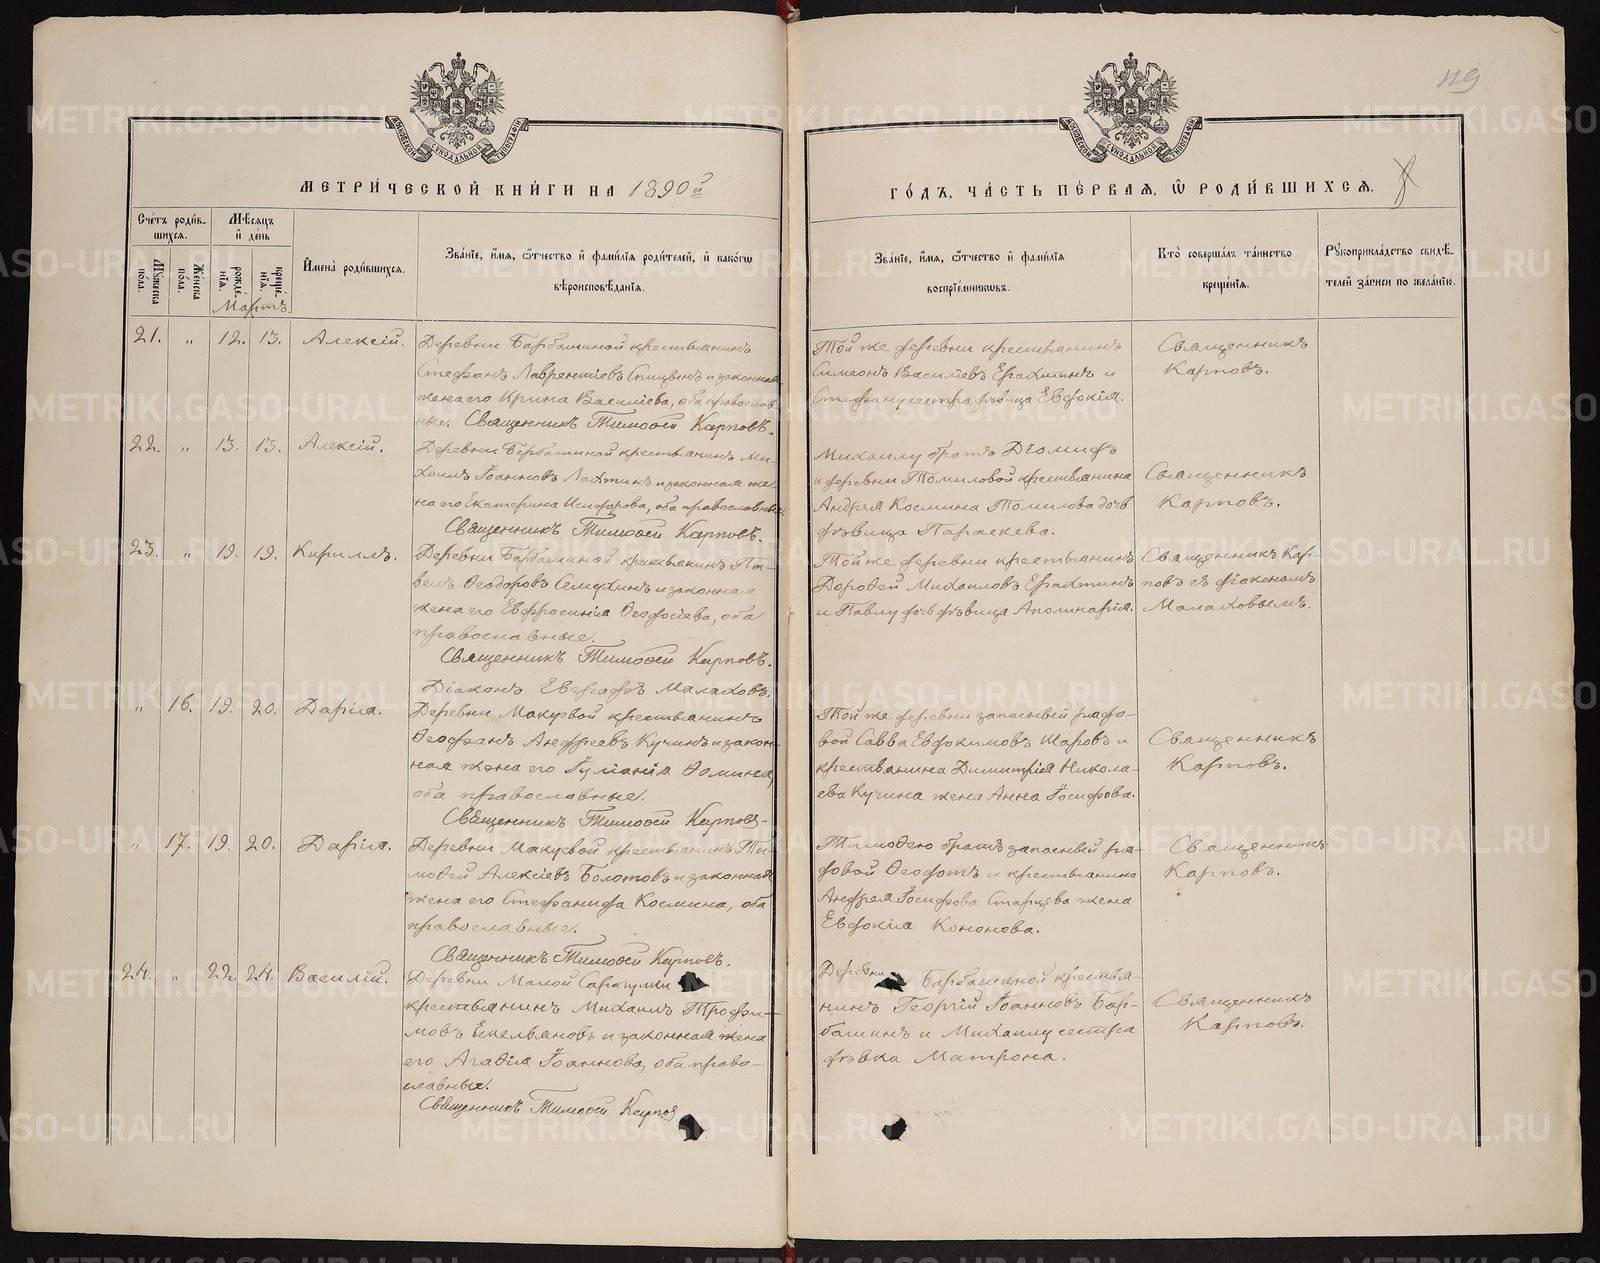 119
МОСКОВСКОЙ СѴНОДАЛЬНОЙ ТИПОГРАФІИ
МОСКОВСКОЙ СѴНОДАЛЬНОЙ ТИПОГРАФІИ
МЕТРИ́ЧЕСКОЙ КНИ́ГИ НА 1890й
ГО́ДЪ, ЧА́СТЬ ПЕ́РВАЯ, Ѡ РОДИ́ВШИХСЯ.
Сче́тъ роди́в-
шихся.
Му́жеска по́ла.
Же́нска по́ла.
Мѣ́сяцъ
и де́нь
рожде́нїя.
креще́нїя.
Мартъ.
Имена̀ роди́вшихся.
Зва́нїе, и́мя, ѻ́тчество и фами́лїя роди́телей, и како́гѡ
вѣроисповѣ́данїя.
Зва́нїе, и́мя, ѻ́тчество и фами́лїя
воспрїе́мникѡвъ.
Кто̀ соверша́лъ та́инство
креще́нїя.
Рукоприкла́дство свидѣ́-
телей за́писи по жела́нїю.
21. „ 12. 13. Алексій.
Деревни Барбашиной крестьянинъ
Стефанъ Лаврентіевъ Спицынъ и законная
жена его Ирина Василіева, оба православ
ные. Священникъ Тимофей Карповъ.
Той же деревни крестьянинъ
Симеонъ Василіевъ Ерахтинъ и
Стефану сестра дѣвица Евдокія.
Священникъ
Карповъ.
22. „ 13. 13. Алексій.
Деревни Барбашиной крестьянинъ Ми-
хаилъ Іоанновъ Лахтинъ и законная же-
на его Екатерина Исидорова, оба православные.
Священникъ Тимофей Карповъ.
Михаилу братъ Діомидъ
и деревни Томиловой крестьянина
Андрея Космина Томилова дочь
дѣвица Параскева.
Священникъ
Карповъ.
23. „ 19. 19. Кириллъ.
Деревни Барбашиной крестьянинъ Па-
велъ Ѳеодоровъ Семухинъ и законная
жена его Евфросинія Ѳеодосіева, оба
православные.
Священникъ Тимофей Карповъ.
Діаконъ Евграфъ Малаховъ.
Той же деревни крестьянинъ
Дороѳей Михаиловъ Ерахтинъ
и Павлу дочь дѣвица Аполинарія.
Священникъ Кар-
повъ съ діакономъ
Малаховымъ.
„ 16. 19. 20. Дарія.
Деревни Макуевой крестьянинъ
Ѳеофанъ Андреевъ Кучинъ и закон-
ная жена его Іуліанія Ѳомина,
оба православные.
Священникъ Тимофей Карповъ
Той же деревни запасный рядо-
вой Савва Евдокимовъ Шаровъ и
крестьянина Димитрія Никола-
ева Кучина жена Анна Іосифова.
Священникъ
Карповъ.
„ 17. 19. 20. Дарія.
Деревни Макуевой крестьянинъ Ти-
моѳей Алексіевъ Болотовъ и законная
жена его Стефанида Космина, оба
православные.
Священникъ Тимофей Карповъ.
Тимоѳею братъ запасный ря-
довой Ѳеодотъ и крестьянина
Андрея Іосифова Старцева жена
Евдокія Кононова.
Священникъ
Карповъ.
24. „ 22. 24. Василій.
Деревни Малой Сарагулки
крестьянинъ Михаилъ Трофи-
мовъ Емельяновъ и законная жена
его Агаѳія Іоаннова, оба право-
славные.
Священникъ Тимофей Карповъ
Деревни Барбашиной крестья-
нинъ Георгій Іоанновъ Бар-
башинъ и Михаилу сестра
дѣвка Матрона.
Священникъ
Карповъ.
METRIKI.GASO-URAL.RU